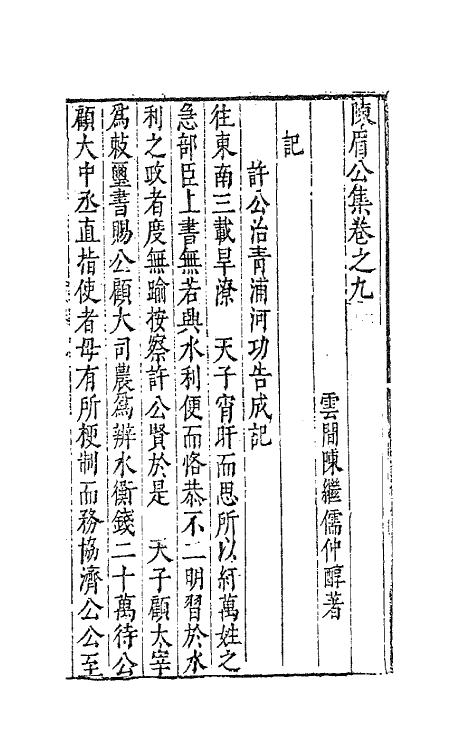 陳眉公集卷之九
雲間陳繼儒仲醇著
記
許公治青浦河功告成記
往東南三載旱潦　天子宵旰而思所以紓萬姓之
急部臣上書無若興水利便而恪恭不二明習於水
利之政者度無踰按察許公賢於是　天子顧太宰
爲敕璽書賜公顧大司農爲辦水衡錢二十萬待公
顧大中丞直指使者毋有所梗制而務協濟公公至